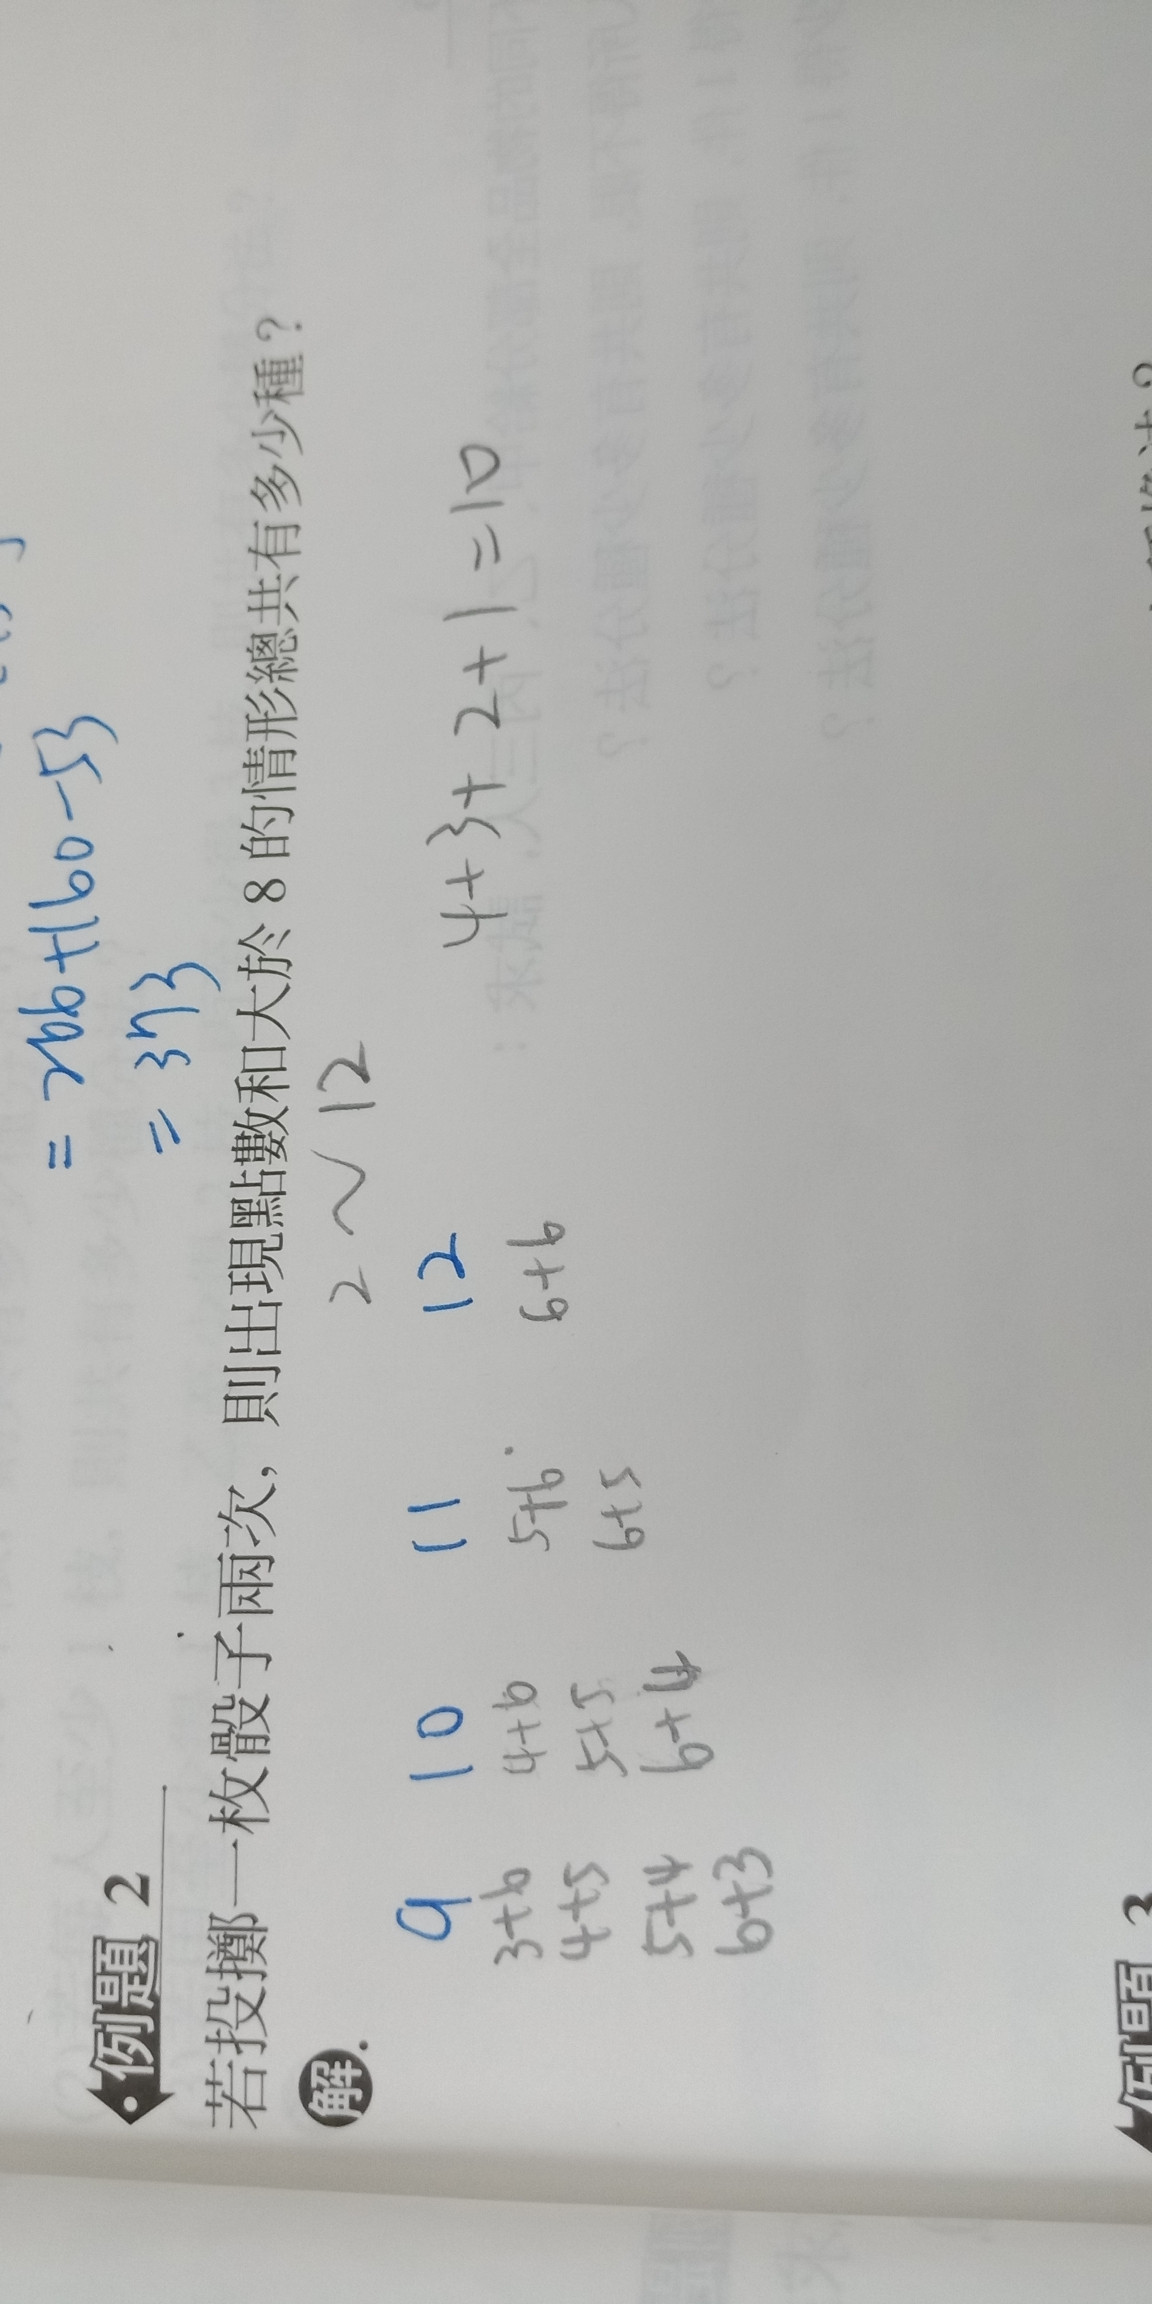 = 266+160-53
= 373
例題 2
若投擲一枚骰子兩次，則出現點數和大於 8 的情形總共有多少種？
解.
2～12
9 10 11 12
3+6 4+6 5+6 6+6
4+5 5+5 6+5
5+4 6+4
6+3
4+3+2+1=10
例題 3